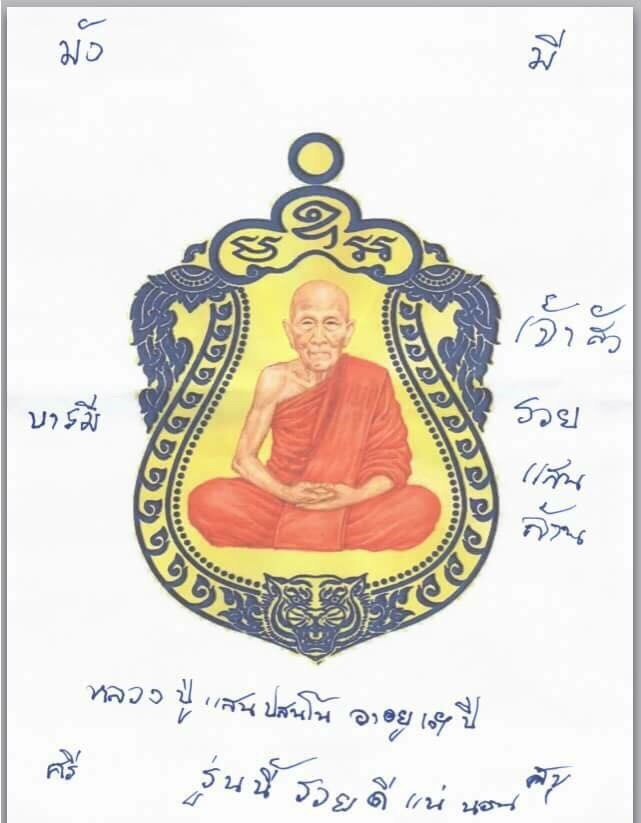 มั่ง มี
เจ้าสัว
บารมี รวย
แสน
ล้าน
หลวงปู่แสน ปสนฺโน อายุ ปี
ศรี
รุ่นนี้ รวยดี แน่นอน